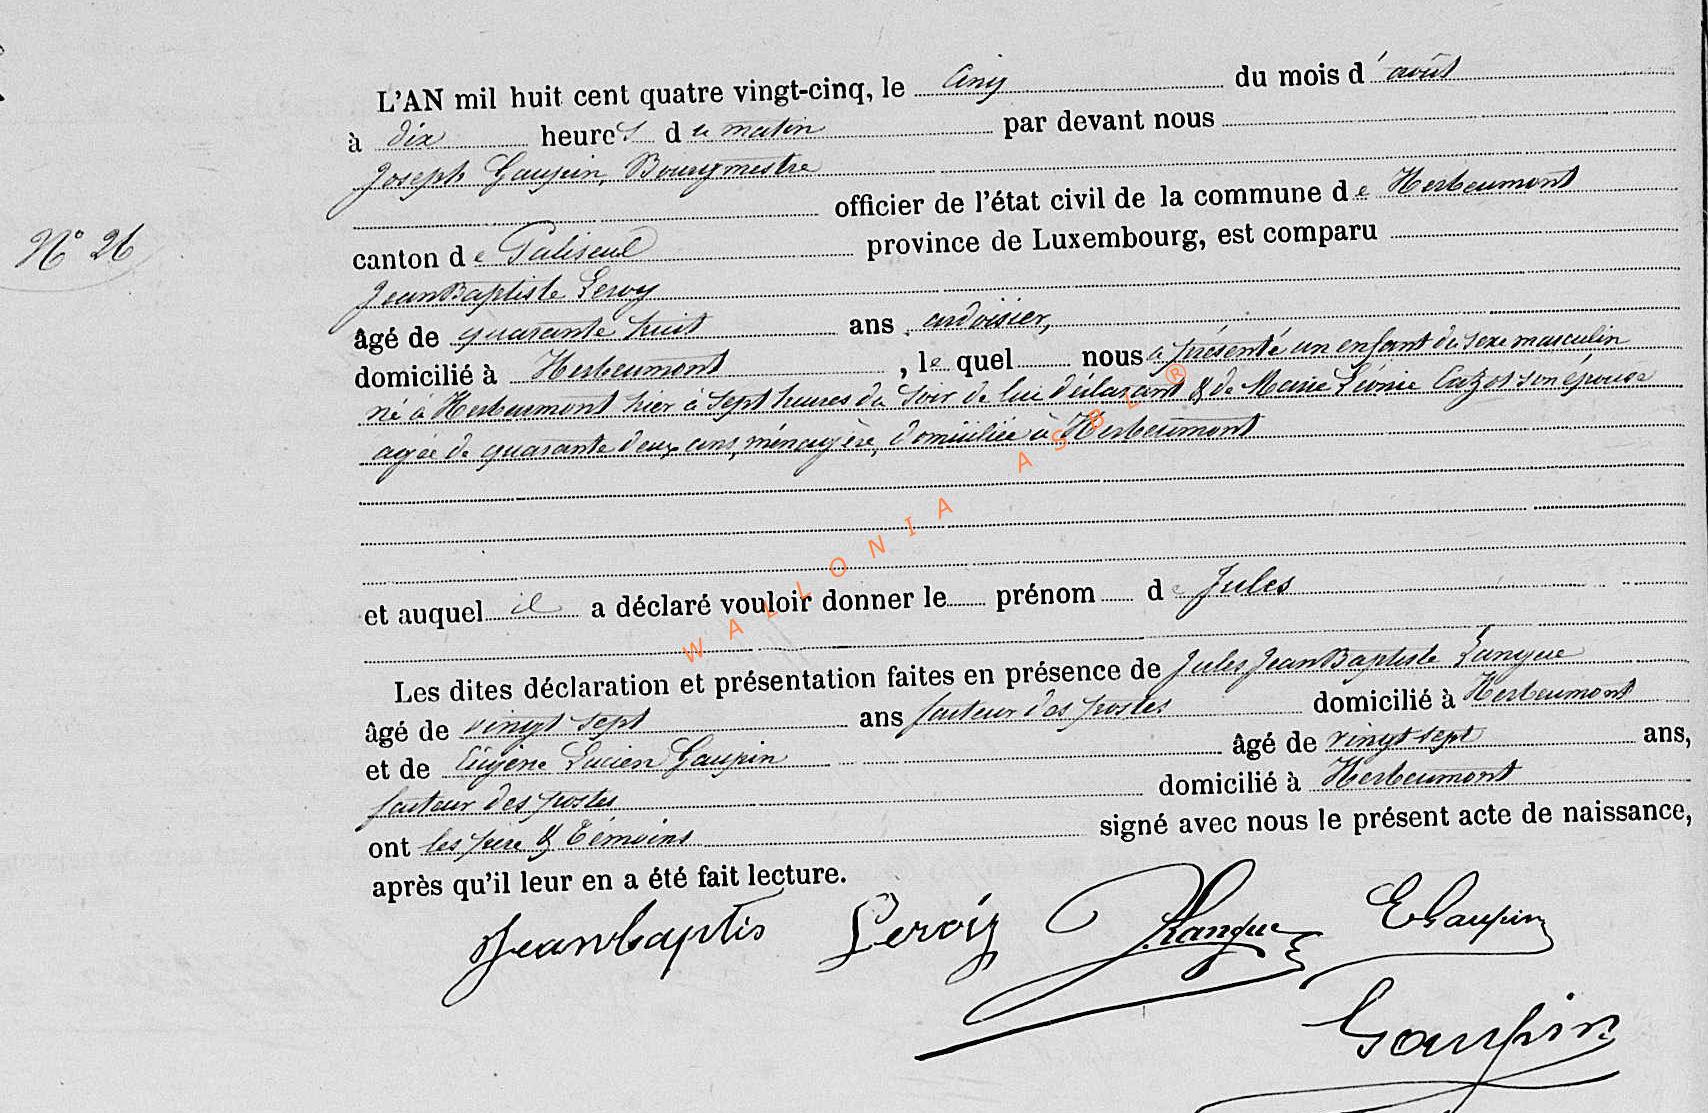 L'AN mil huit cent quatre vingt-cinq, le cinq du mois d'août
à dix heures du matin par devant nous
Joseph Gaupin, Bourgmestre
officier de l'état civil de la commune de Herbeumont
N° 26
canton de Paliseul province de Luxembourg, est comparu
Jean Baptiste Leroy
âgé de quarante huit ans, ardoisier,
domicilié à Herbeumont, lequel nous a présenté un enfant du sexe masculin
né à Herbeumont hier à sept heures du soir de lui déclarant & de Marie Léonie Cazot son épouse
agée de quarante deux ans, ménagère, domiciliée à Herbeumont
WALLONIA ASBL ®
et auquel il a déclaré vouloir donner le prénom de Jules
Les dites déclaration et présentation faites en présence de Jules Jean Baptiste Langue
âgé de vingt sept ans facteur des postes domicilié à Herbeumont
et de Eugène Lucien Gaupin âgé de vingt sept ans,
facteur des postes domicilié à Herbeumont
ont les père & témoins signé avec nous le présent acte de naissance,
après qu'il leur en a été fait lecture.
Jeanbaptis Leroiy JLangue EGaupin
Gaupin